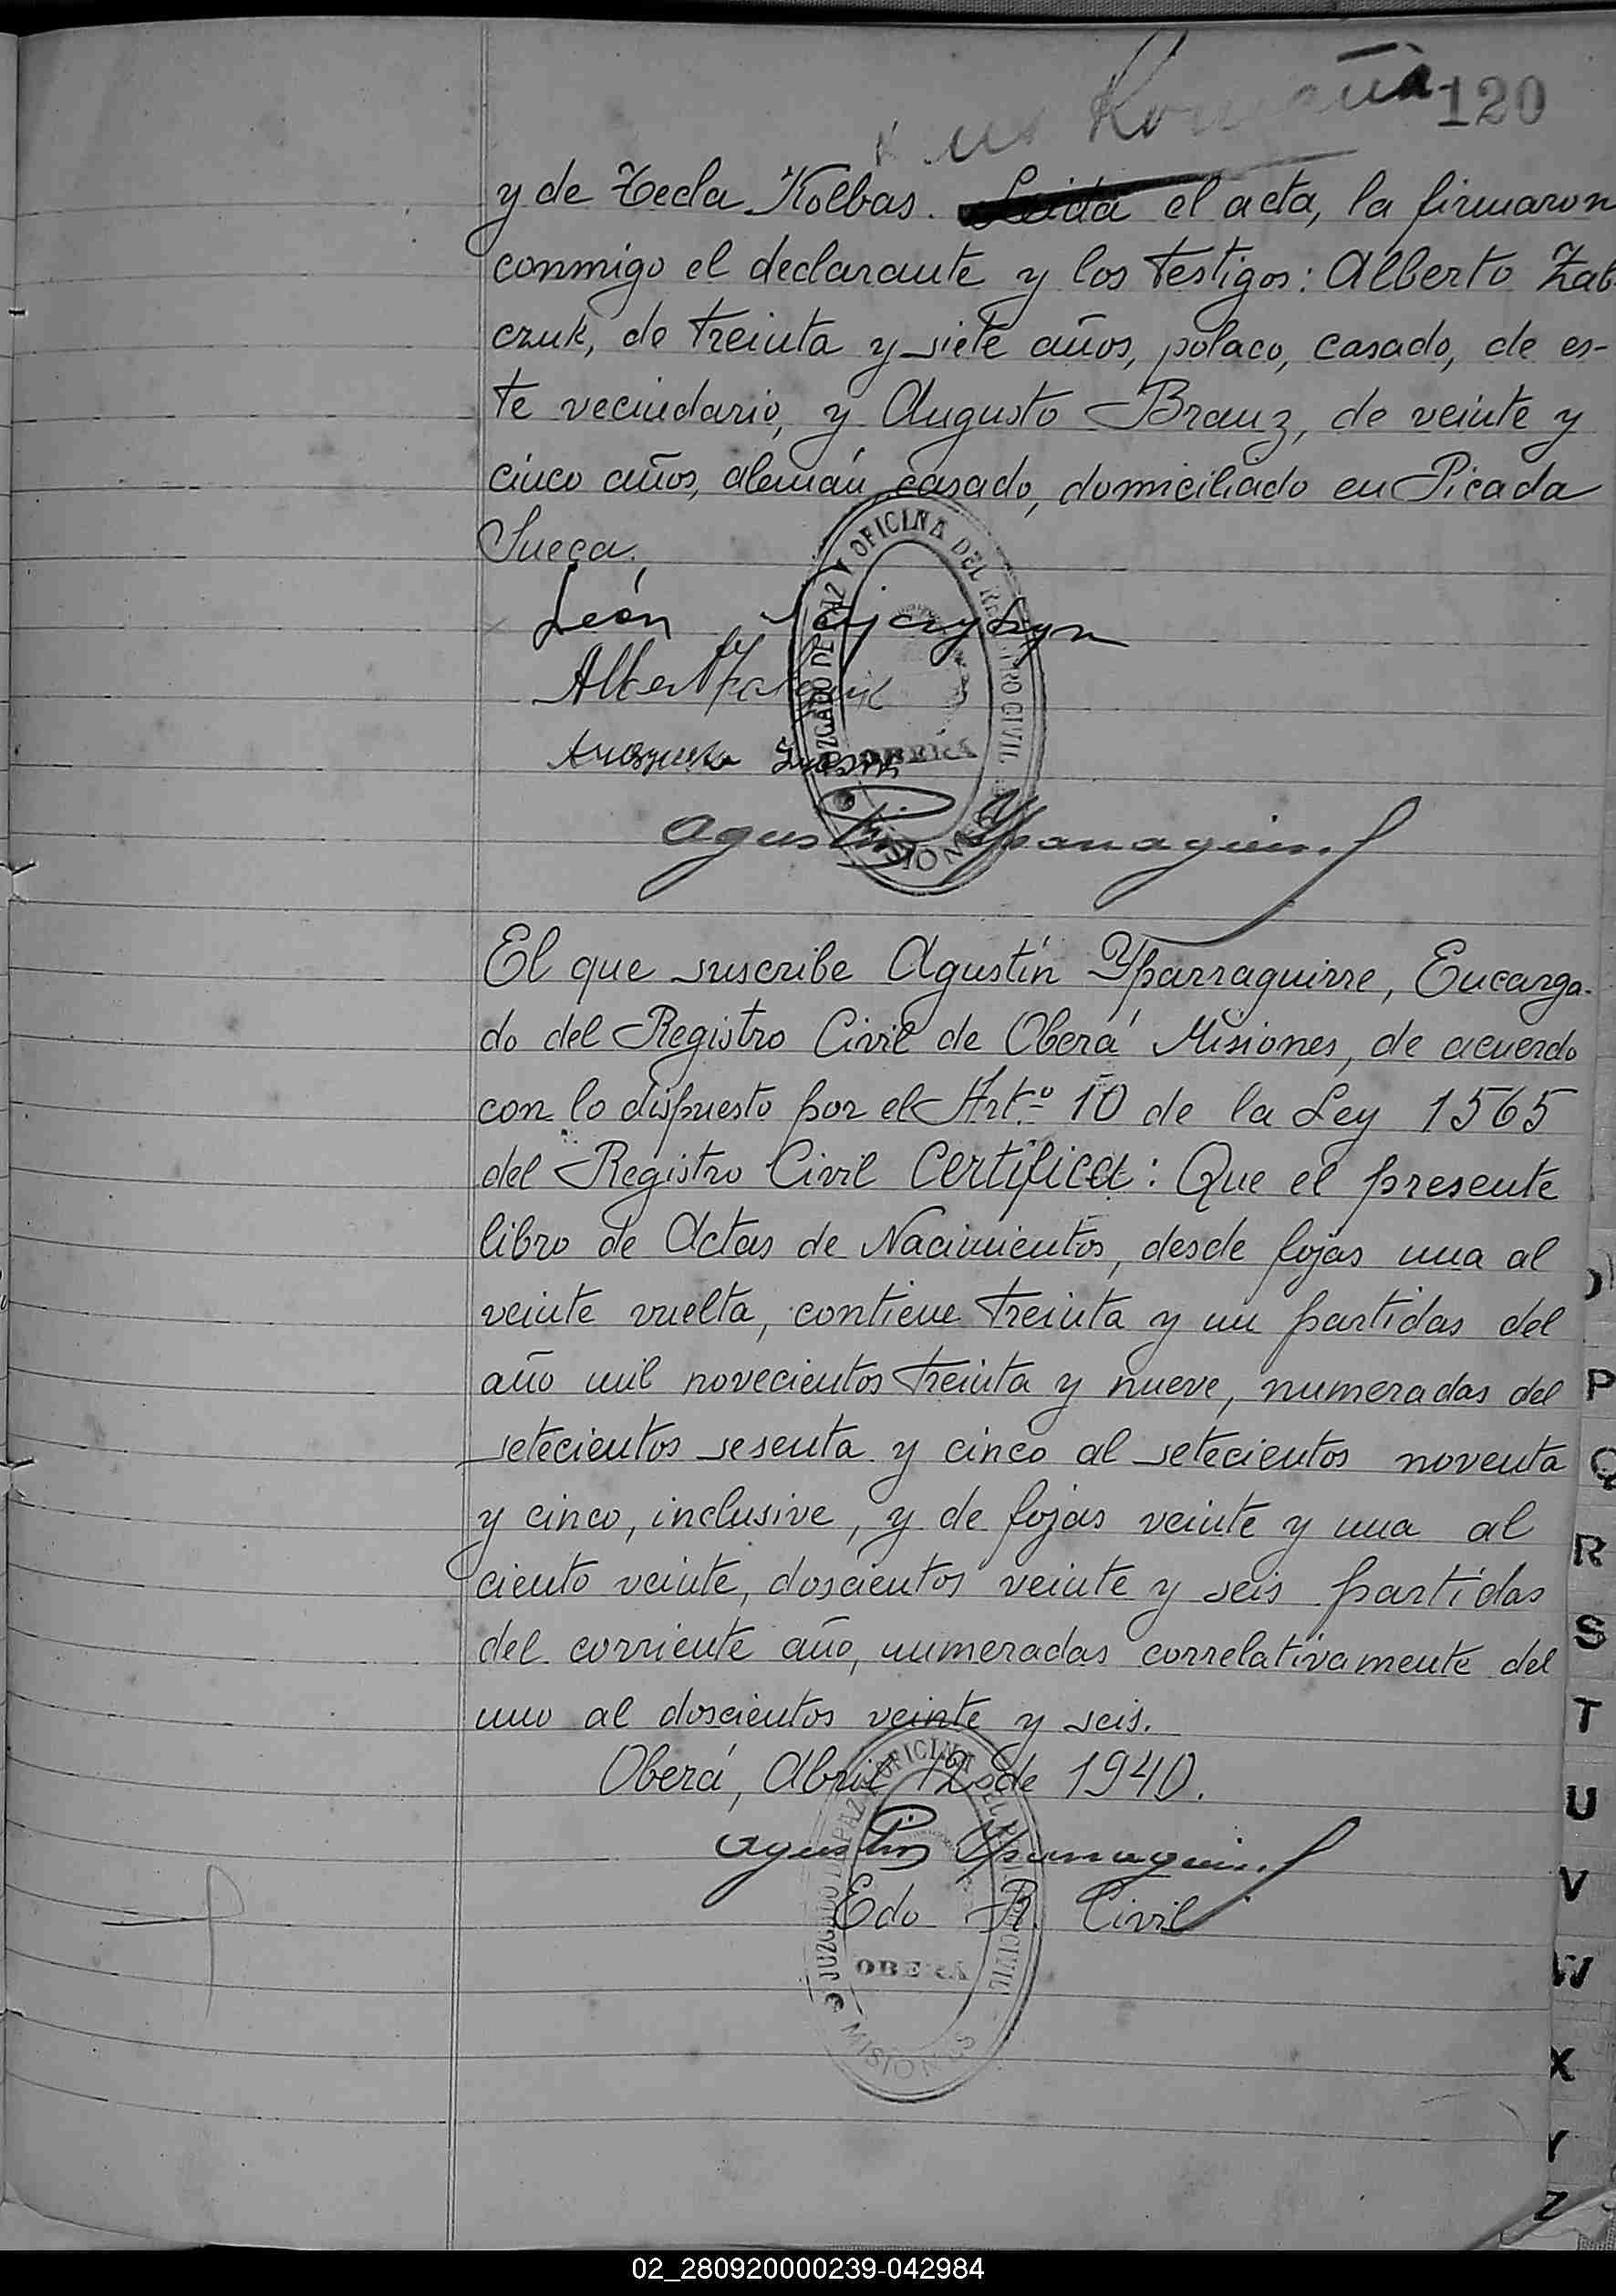 120
y de Tecla Kolbas. Leida el acta, la firmaron
conmigo el declarante y los testigos: Alberto Zab-
czuk, de treinta y siete años, polaco, casado, de es-
te vecindario, y Augusto Branz, de veinte y
cinco años, alemán, casado, domiciliado en Picada
Sueca.
León
Agustín Yparraguirre
JUZGADO DE PAZ Y OFICINA DEL REGISTRO CIVIL
OBERA
MISIONES
El que suscribe Agustín Yparraguirre, Encarga-
do del Registro Civil de Oberá Misiones, de acuerdo
con lo dispuesto por el Art.º 10 de la Ley 1565
del Registro Civil Certifica: Que el presente
libro de Actas de Nacimientos, desde fojas una al
veinte vuelta, contiene treinta y un partidas del
año mil novecientos treinta y nueve, numeradas del
setecientos sesenta y cinco al setecientos noventa
y cinco, inclusive, y de fojas veinte y una al
ciento veinte, doscientos veinte y seis partidas
del corriente año, numeradas correlativamente del
uno al doscientos veinte y seis.
Oberá, Abril 12 de 1940.
Agustín Yparraguirre
Edo R. Civil
JUZGADO DE PAZ Y OFICINA DEL REGISTRO CIVIL
OBERA
MISIONES
P
Q
R
S
T
U
V
W
X
Y
Z
02_280920000239-042984